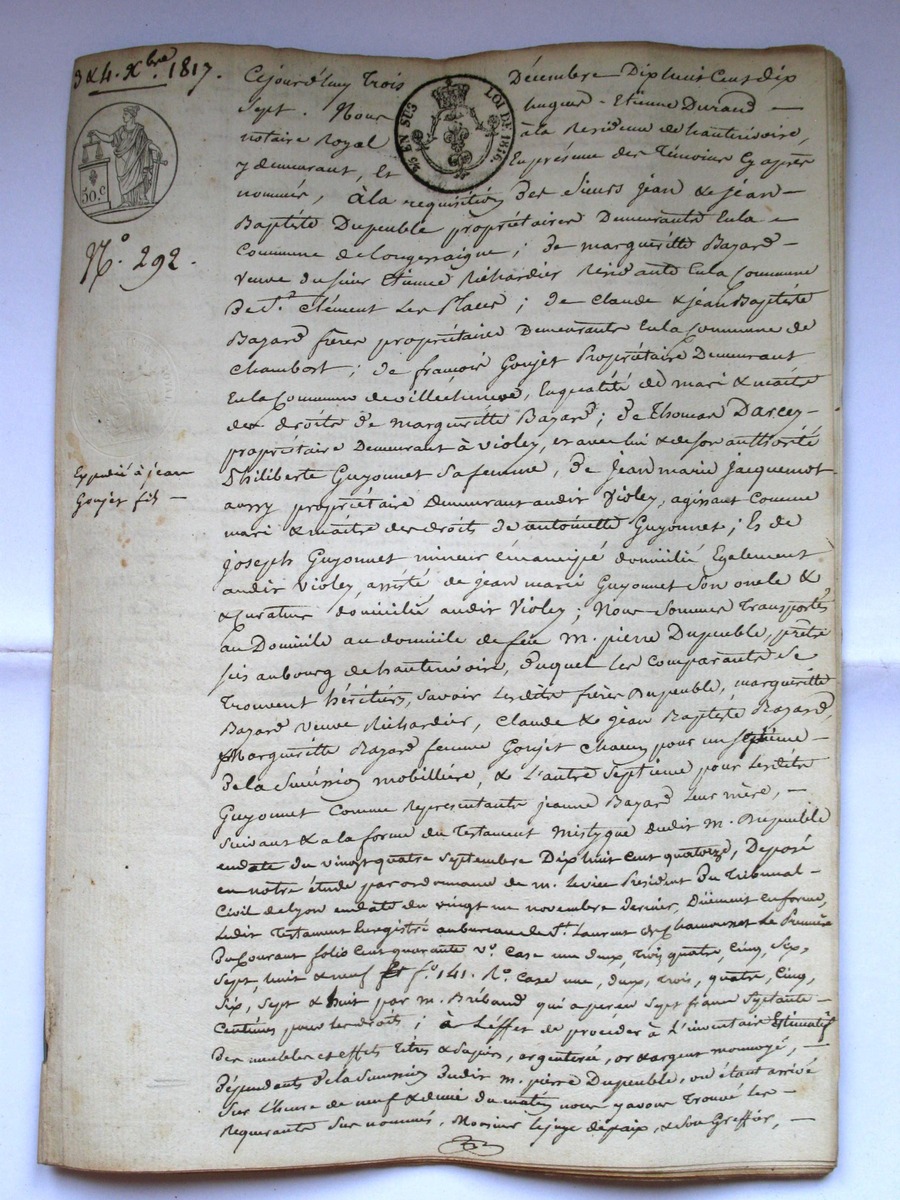 3 & 4. Xbre. 1817.
50.c
N.o 292.
Expédié à jean
Goujet fils —
EN SUS LOI DE 1816.
Cejourd'huy Trois Décembre Dix huit Cent dix
Sept. Nous hugues - Etienne Durand —
notaire Royal à la Résidence de hauterivoire,
y demeurant, et En présence des Témoins Cy après
nommés, à la requisition des Sieurs jean & jean-
Baptiste Dupeuble propriétaires Demeurants En la -
Commune de Longessaigne ; de margueritte Bazard -
veuve du sieur Etienne Richardier Residante En la Commune
De St. Clément les Places ; de Claude & jean Baptiste
Bazard frères propriétaire Demeurants En la Commune de
Chambost ; de françois Goujet Propriétaire Demeurant
En la Commune de villechenève, En qualité de mari & maitre
des droits de marguerite Bazard ; de Thomas Darcey -
propriétaire Demeurant à violey, et avec lui & de son authorité
Philiberte Guyonnet sa femme, de jean marie jacquemot
aussy propriétaire Demeurant audit Violey, agissant comme
mari & maitre des droits de antoinette Guyonnet ; Et de
joseph Guyonnet mineur émancipé domicilié Egalement
audit Violey, assisté de jean marie Guyonnet son oncle &
& Curateur domicilié audit Violey ; Nous Sommes Transportés
au Domicile au domicile de feu m. pierre Dupeuble, prêtre
sis au bourg de hauterivoire, Duquel les comparants se
Trouvent héritiers, savoir lesdits frères Dupeuble, marguerite
Bazard veuve Richardier, Claude & jean Baptiste Bazard,
Marguerite Bazard femme Goujet Chacun pour un septième -
De la Succession mobillière, & L'autre Septième pour lesdits
Guyonnet Comme Representants jeanne Bazard Leur mère, —
Suivant & à la forme du Testament Mistyque dudit m. Dupeuble
en date du vingt quatre septembre Dix huit cent quatorze, Déposé
en notre étude par ordonnance de m. le vice Président Du Tribunal -
Civil de Lyon en date du vingt un novembre dernier, Dûement en forme,
Ledit Testament Enregistré au bureau de St. Laurent de Chamousset Le Premier
Du Courant folio Cent quarante v.o Case une deux, trois quatre, Cinq, Six,
Sept, huit & neuf Et f.o 141. R.o Case une, deux, trois, quatre, Cinq,
Six, Sept & huit par m. Bribaud qui a perçu Sept francs Septante -
Centimes pour les droits ; à L'éffet de proceder à L'inventaire Estimatif
Des meubles et effets titres & papiers, argenterie, or & argent monnoyé, —
Dépendants De la Succession Dudit m. pierre Dupeuble, où étant arrivé
Sur L'heure de neuf & demie du matin nous y avons Trouvé les -
Requerants Sus nommés, Monsieur le juge de paix, & Son Greffier, —